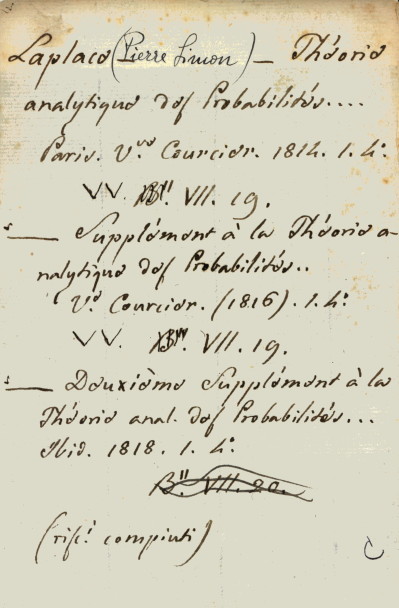 Laplace (Pierre Simon) — Théorie
analytique des Probabilités....
Paris. V.ve Courcier. 1814. 1. 4.°
VV. B.II VII. 19.
— Supplément à la Théorie a-
nalytique des Probabilités..
V.e Courcier. (1816). 1. 4.°
VV. VII. 19.
— Deuxième Supplément à la
Théorie anal. des Probabilités...
Ibid. 1818. 1. 4.°
B.II VII. 20.
(risc.i compiuti)